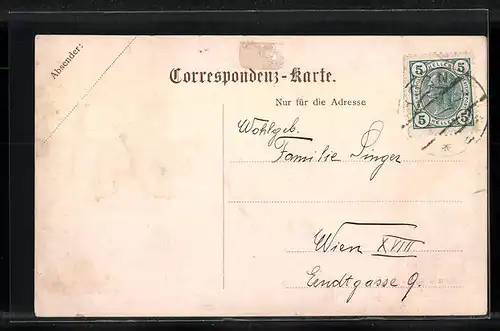 Absender:
Correspondenz-Karte.
Nur für die Adresse
5 HELLER 5
5 5
Wohlgeb.
Familie Singer
Wien XVIII
Eendtgasse 9.